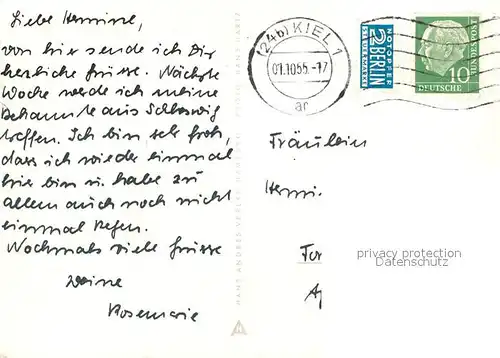 Liebe Hermine,
von hier sende ich Dir
herzliche Grüsse. Nächste
Woche werde ich meine
Bekannte aus Schleswig
treffen. Ich bin sehr froh,
dass ich wieder einmal
hier bin u. habe zu
allem auch noch nicht
einmal Regen.
Nochmals viele Grüsse
Deine
Rosemarie
(24b) KIEL 1
01.10.55.-17
ar
NOTOPFER
2 BERLIN
STEUERMARKE
10
DEUTSCHE
BUNDESPOST
Fräulein
Hermi
privacy protection
Datenschutz
HANS ANDRES VERLAG
H